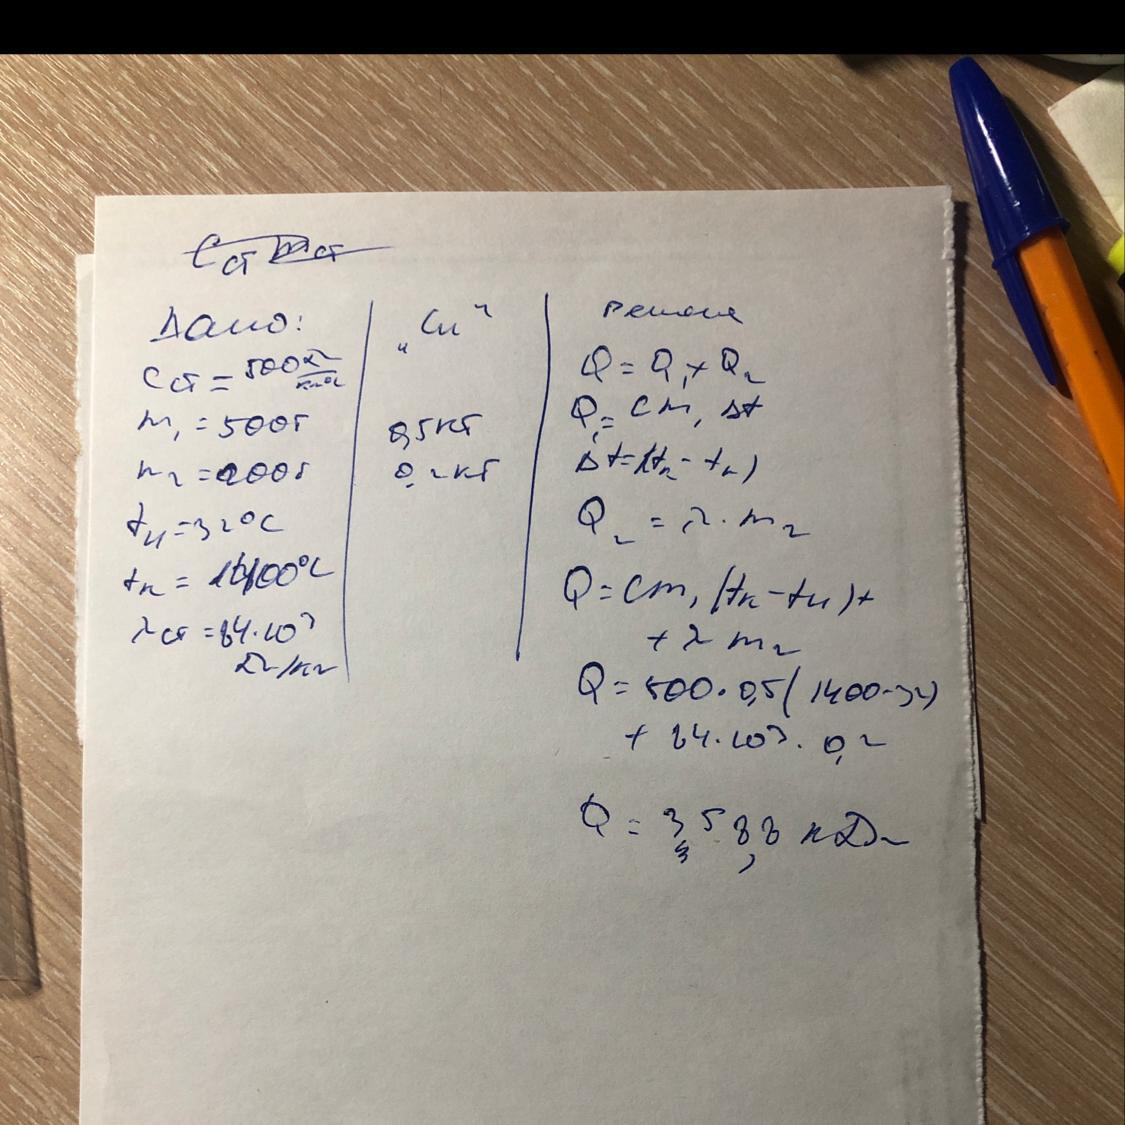 Cст mст
Дано:
Cст = 500 Дж/кг°C
m₁ = 500г
m₂ = 200г
tн = 32°C
tк = 1400°C
λст = 84·10³
Дж/кг
"Си"
0,5кг
0,2кг
Решение
Q = Q₁ + Q₂
Q₁ = Cm₁ Δt
Δt = (tк - tн)
Q₂ = λ·m₂
Q = Cm₁ (tк - tн) +
+ λ m₂
Q = 500·0,5 (1400-32)
+ 84·10³·0,2
Q = 358,8 кДж